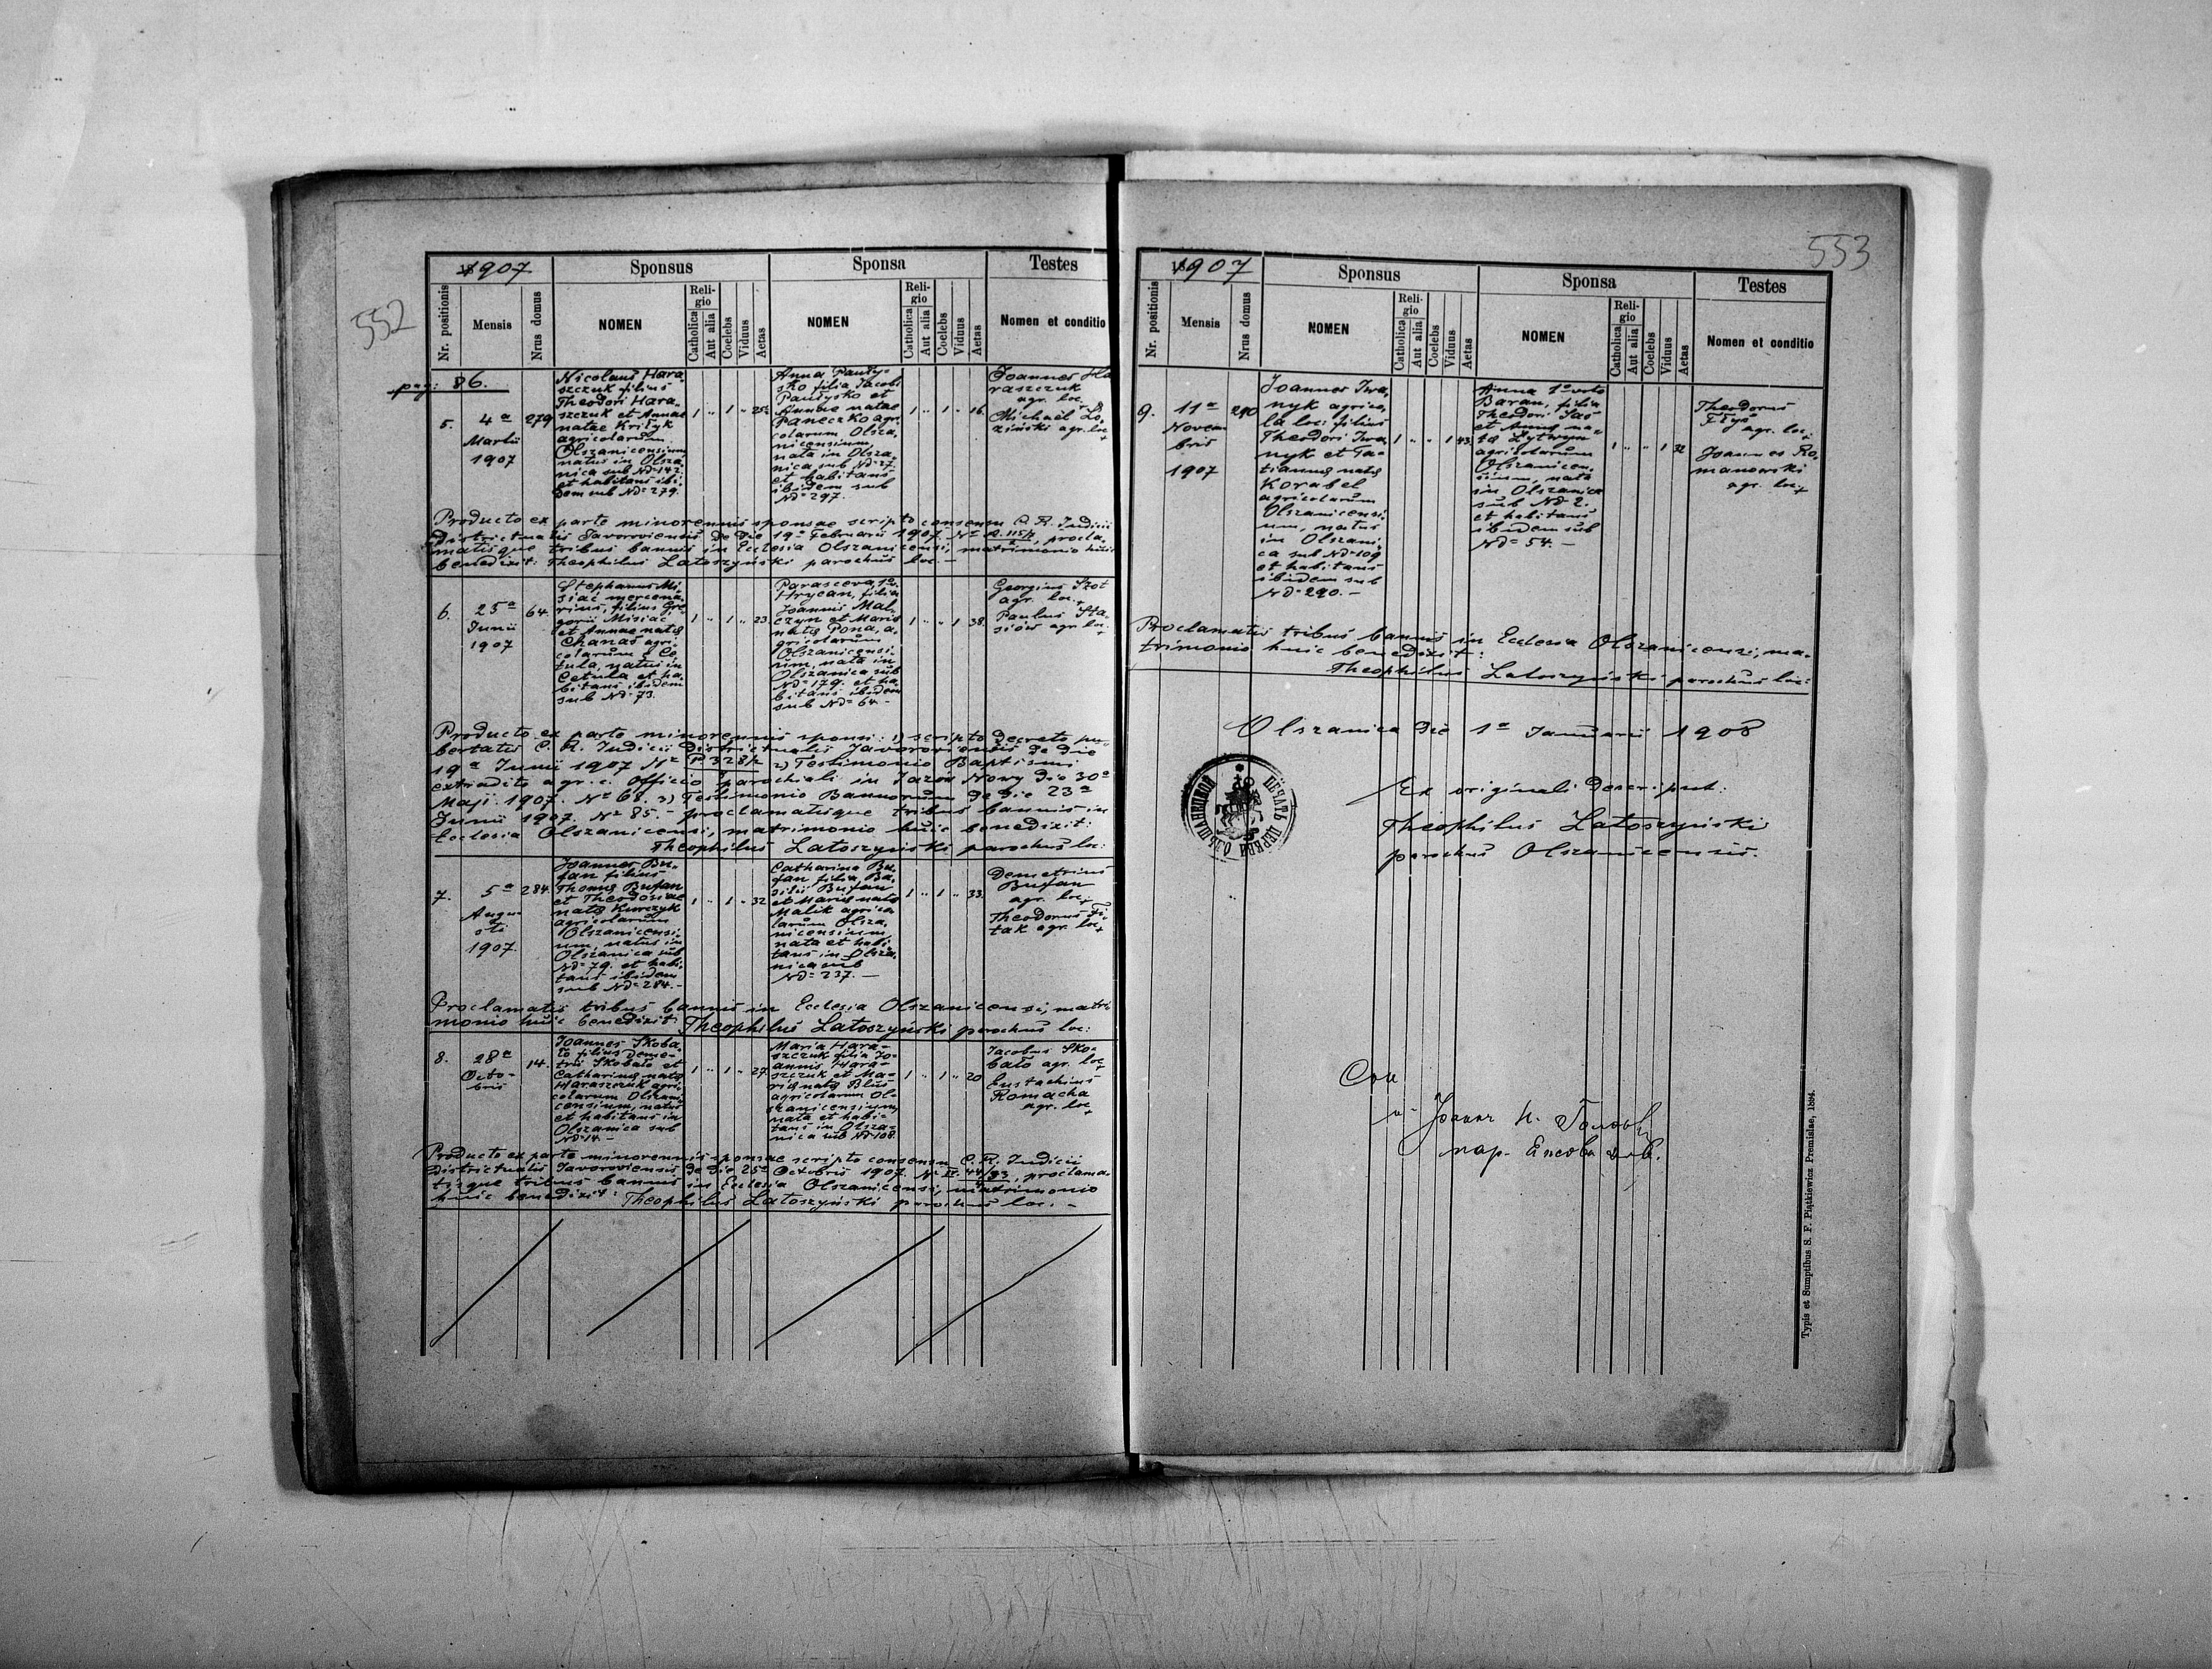 552
1907
Sponsus
Sponsa
Testes
Nr. positionis
Mensis
Nrus domus
NOMEN
Religio
Catholica
Aut alia
Coelebs
Viduus
Aetas
NOMEN
Religio
Catholica
Aut alia
Coelebs
Viduus
Aetas
Nomen et conditio
pag: 86.
5.
4ª
Martii
1907
279
Nicolaus Hara-
szczuk filius
Theodori Hara-
szczuk et Annae
natae Krityk
agricolarum
Olszanicensium
natus in Olsza-
nica sub Nd=142.
et habitans ibi-
dem sub Nd=279.
1 " 1 " 25½
Anna Pauly-
sko filia Jacobi
Paulysko et
Annae natae
Paneczko agri-
colarum Olsza-
nicensium,
nata in Olsza-
nica sub Nd=27.
et habitans
ibidem sub
Nd=297.
1 " 1 " 16.
Joannes Ha-
raszczuk
agr. loc.
Michaël Ło-
ziński agr. loc
+
Producto ex parte minorennis sponsae scripto consensu C. R. Judicii
Districtualis Javoroviensis de die 19ª Februarii 1907. Nº, procla-
matisque tribus bannis in Ecclesia Olszanicensi, matrimonio huic
benedixit: Theophilus Latoszyński parochus loc. -
6.
25ª
Junii
1907
64.
Stephanus Mi-
siać mercena-
rius, filius Gre-
gorii Misiać
et Annae natae
Chanas agri-
colarum e Ce-
tula, natus in
Cetula et ha-
bitans ibidem
sub Nd=73.
1 " 1 " 23.
Parasceva, 1º v.
Hrycan, filia
Joannis Mal-
czyn et Mariae
natae Pona, a-
gricolarum
Olszanicensi-
um, nata in
Olszanica sub
Nd=179. et ha-
bitans ibidem
sub Nd=64. -
1 " " 1 38.
Georgius Szot
agr. loc. +
Paulus Sta-
siów agr. loc.
+
Producto ex parte minorennis sponsi: 1) scripto Decreto pu-
bertatis C. R. Judicii Districtualis Javoroviensis de die
19ª Junii 1907 Nº 2) Testimonio Baptismi
extradito a gr. c. Officio parochiali in Jazów Nowy die 30ª
Maji 1907. Nº 68. 3) Testimonio Bannorum de die 23ª
Junii 1907. Nº 85. - proclamatisque tribus bannis in
Ecclesia Olszanicensi, matrimonio huic benedixit:
Theophilus Latoszyński parochus loc:
7.
5ª
Augu-
sti
1907.
284.
Joannes Bu-
fan filius
Thomae Bufan
et Theodosiae
natae Kurczyk
agricolarum
Olszanicensi-
um, natus in
Olszanica sub
Nd=79. et habi-
tans ibidem
sub Nd=284. -
1 " 1 " 32
Catharina Bu-
fan filia Ba-
silii Bufan
et Mariae natae
Malik agrico-
larum Olsza-
nicensium,
nata et habi-
tans in Olsza-
nica sub
Nd=237. -
1 " 1 " 33.
Demetrius
Bufan
agr. loc. +
Theodorus Fi-
tak agr. loc
+
Proclamatis tribus bannis in Ecclesia Olszanicensi, matri-
monio huic benedixit Theophilus Latoszyński parochus loc:
8.
28ª
Octo-
bris
14.
Joannes Skoba-
ło filius Deme-
trii Skobało et
Catharinae natae
Haraszczuk agri-
colarum Olszani-
censium, natus
et habitans in
Olszanica sub
Nd=14 -
1 " 1 " 27.
Maria Hara-
szczuk filia Jo-
annis Hara-
szczuk et Ma-
riae natae Blus
agricolarum Ol-
szanicensium,
nata et habi-
tans in Olsza-
nica sub Nd=108.
1 " 1 " 20
Jacobus Sko-
bało agr. loc
+
Eustachius
Romacha
agr. loc
+
Producto ex parte minorennis sponsae scripto consensu C. R. Judicii
Districtualis Javoroviensis de die 25ª Octobris 1907. Nº, proclama-
tisque tribus bannis in Ecclesia Olszanicensi, matrimonio
huic benedixit: Theophilus Latoszyński parochus loc. -
553
1907
Sponsus
Sponsa
Testes
Nr. positionis
Mensis
Nrus domus
NOMEN
Religio
Catholica
Aut alia
Coelebs
Viduus
Aetas
NOMEN
Religio
Catholica
Aut alia
Coelebs
Viduus
Aetas
Nomen et conditio
9.
11ª
Novem-
bris
1907
290
Joannes Iwa-
nyk agrico-
la loc: filius
Theodori Iwa-
nyk et Ta-
tiannae natae
Korabel
agricolarum
Olszanicensi-
um, natus
in Olszani-
ca sub Nd=109
et habitans
ibidem sub
Nd=290. -
1 " " 1 43.
Anna 1º voto
Baran, filia
Theodori Sas
et Annae na-
ta Lytwyn
agricolarum
Olszanicen-
sium, nata
in Olszanica
sub Nd=2.
et habitans
ibidem sub
Nd=54. -
1 " " 1 32
Theodorus
Flys
agr. loc.
+
Joannes Ro-
manowski
agr. loc.
+
Proclamatis tribus bannis in Ecclesia Olszanicensi, ma-
trimonio huic benedixit:
Theophilus Latoszyński parochus loc:
Olszanica die 1ª Januarii 1908
ПЕЧАТЬ ЦЕРКВИ ОЛЬШАНИЦКОЙ
Ex originali descripsit:
Theophilus Latoszyński
parochus Olszanicensis.
пар.
Typis et Sumptibus S. F. Piątkiewicz Premislae, 1894.